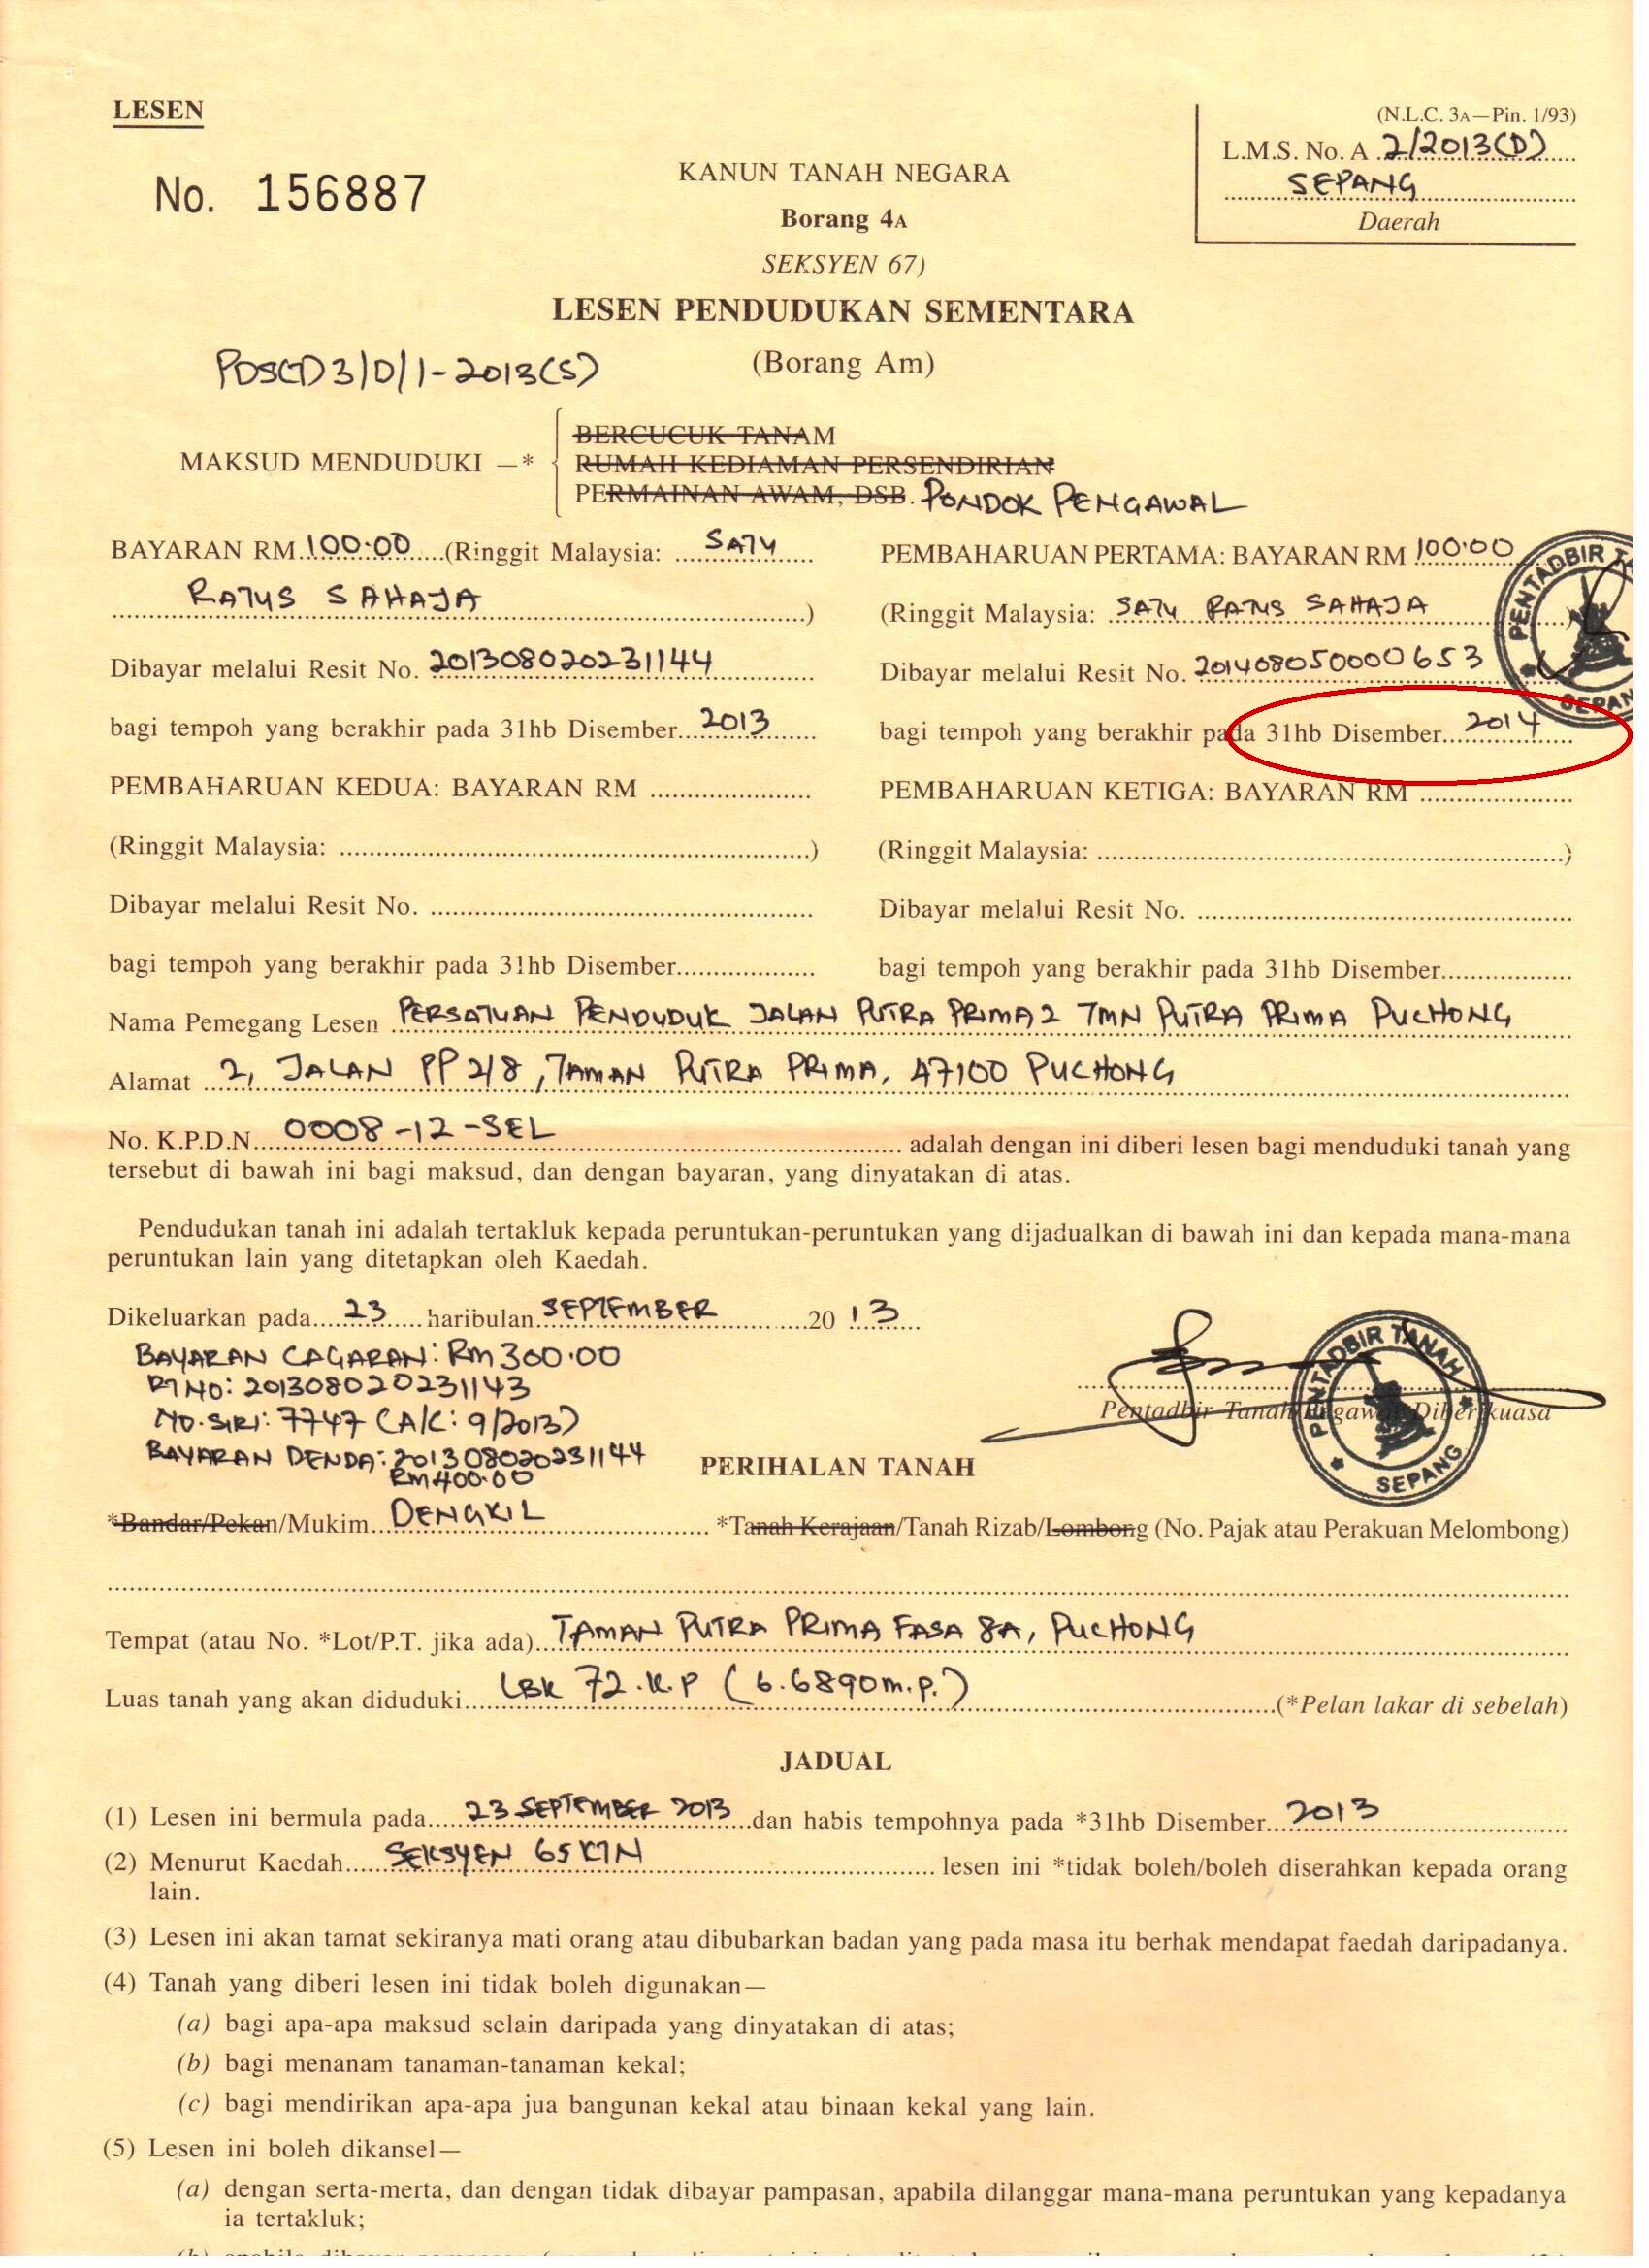 LESEN
(N.L.C. 3A—Pin. 1/93)
L.M.S. No. A 2/2013(D)
SEPANG
Daerah
No. 156887
KANUN TANAH NEGARA
Borang 4A
SEKSYEN 67)
LESEN PENDUDUKAN SEMENTARA
(Borang Am)
PDS(T)3/D/1-2013(S)
MAKSUD MENDUDUKI —*
BERCUCUK TANAM
RUMAH KEDIAMAN PERSENDIRIAN
PERMAINAN AWAM, DSB. PONDOK PENGAWAL
BAYARAN RM 100.00 (Ringgit Malaysia: SATU
RATUS SAHAJA )
Dibayar melalui Resit No. 201308020231144
bagi tempoh yang berakhir pada 31hb Disember 2013
PEMBAHARUAN PERTAMA: BAYARAN RM 100.00
(Ringgit Malaysia: SATU RATUS SAHAJA
Dibayar melalui Resit No. 201408050000653
bagi tempoh yang berakhir pada 31hb Disember 2014
PENTADBIR
SEPANG
PEMBAHARUAN KEDUA: BAYARAN RM
(Ringgit Malaysia: )
Dibayar melalui Resit No.
bagi tempoh yang berakhir pada 31hb Disember
PEMBAHARUAN KETIGA: BAYARAN RM
(Ringgit Malaysia: )
Dibayar melalui Resit No.
bagi tempoh yang berakhir pada 31hb Disember
Nama Pemegang Lesen PERSATUAN PENDUDUK JALAN PUTRA PRIMA 2 TMN PUTRA PRIMA PUCHONG
Alamat 2, JALAN PP 2/8, TAMAN PUTRA PRIMA, 47100 PUCHONG
No. K.P.D.N. 0008-12-SEL adalah dengan ini diberi lesen bagi menduduki tanah yang
tersebut di bawah ini bagi maksud, dan dengan bayaran, yang dinyatakan di atas.
Pendudukan tanah ini adalah tertakluk kepada peruntukan-peruntukan yang dijadualkan di bawah ini dan kepada mana-mana
peruntukan lain yang ditetapkan oleh Kaedah.
Dikeluarkan pada 23 haribulan SEPTEMBER 20 13
BAYARAN CAGARAN: RM 300.00
RT NO: 201308020231143
NO. SIRI: 7747 (A/C: 9/2013)
BAYARAN DENDA: 201308020231144
RM 400.00
Pentadbir Tanah/Pegawai Diberikuasa
PENTADBIR TANAH
SEPANG
PERIHALAN TANAH
*Bandar/Pekan/Mukim DENGKIL *Tanah Kerajaan/Tanah Rizab/Lombong (No. Pajak atau Perakuan Melombong)
Tempat (atau No. *Lot/P.T. jika ada) TAMAN PUTRA PRIMA FASA 8A, PUCHONG
Luas tanah yang akan diduduki LBK 72.K.P (6.6890m.p.) (*Pelan lakar di sebelah)
JADUAL
(1) Lesen ini bermula pada 23 SEPTEMBER 2013 dan habis tempohnya pada *31hb Disember 2013
(2) Menurut Kaedah SEKSYEN 65 KTN lesen ini *tidak boleh/boleh diserahkan kepada orang
lain.
(3) Lesen ini akan tamat sekiranya mati orang atau dibubarkan badan yang pada masa itu berhak mendapat faedah daripadanya.
(4) Tanah yang diberi lesen ini tidak boleh digunakan—
(a) bagi apa-apa maksud selain daripada yang dinyatakan di atas;
(b) bagi menanam tanaman-tanaman kekal;
(c) bagi mendirikan apa-apa jua bangunan kekal atau binaan kekal yang lain.
(5) Lesen ini boleh dikansel—
(a) dengan serta-merta, dan dengan tidak dibayar pampasan, apabila dilanggar mana-mana peruntukan yang kepadanya
ia tertakluk;